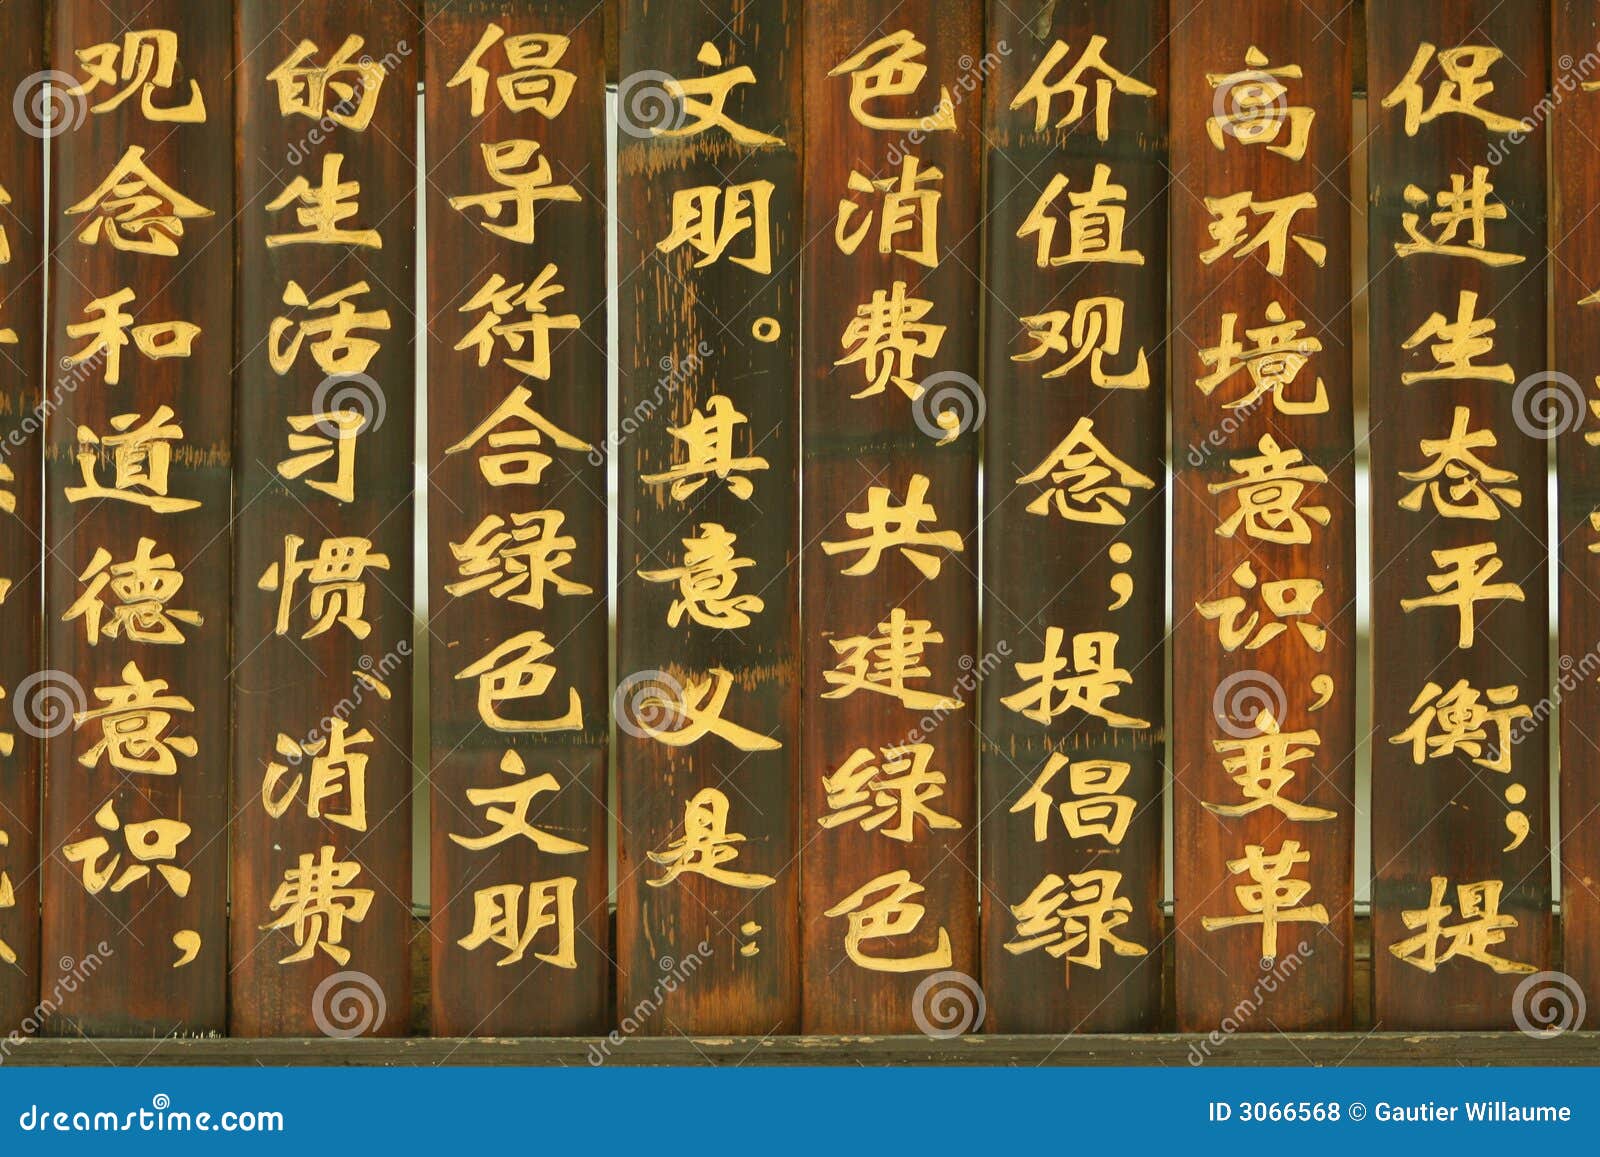 促进生态平衡；提
高环境意识，变革
价值观念；提倡绿
色消费，共建绿色
文明。其意义是：
倡导符合绿色文明
的生活习惯、消费
观念和道德意识，
dreamstime.com
ID 3066568 © Gautier Willaume